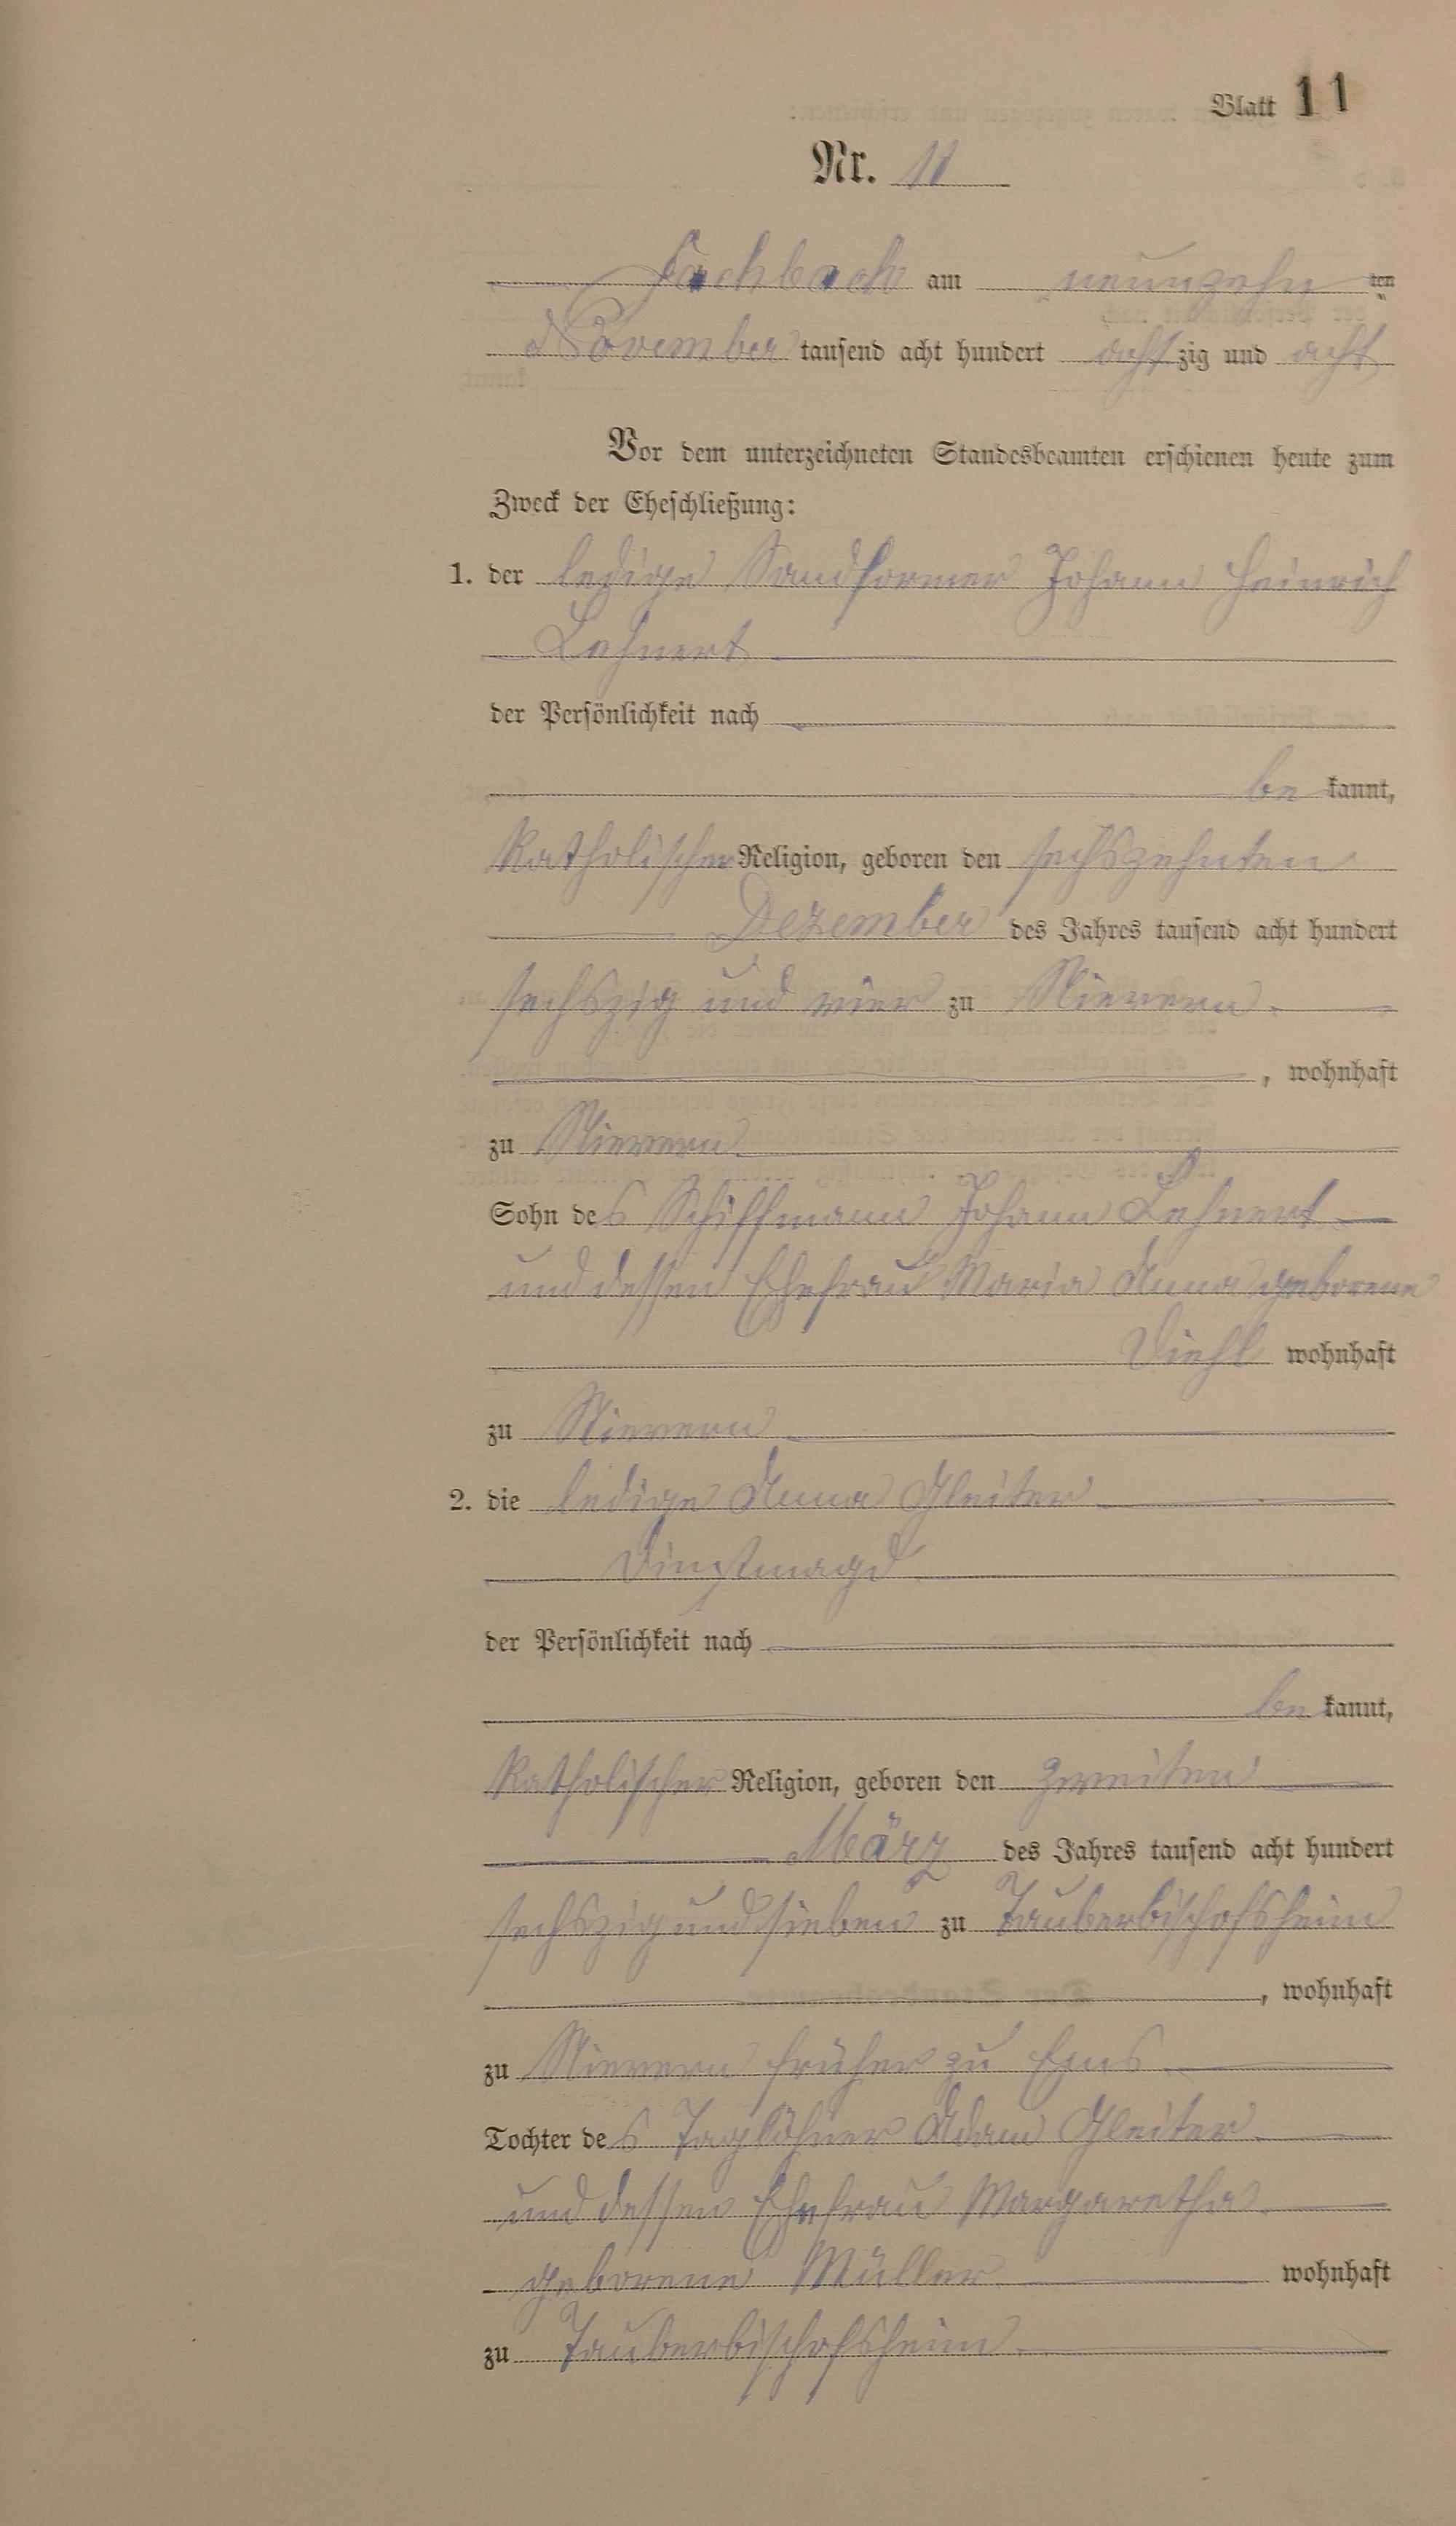 Blatt 11
Nr. 11
Fachbach am neunzehn ten
November tausend acht hundert achtzig und acht
Vor dem unterzeichneten Standesbeamten erschienen heute zum
Zweck der Eheschließung:
1. der ledige Sandformer Johann Heinrich
Lehnert
der Persönlichkeit nach
be kannt,
katholischer Religion, geboren den sechszehnten
Dezember des Jahres tausend acht hundert
sechszig und vier zu Nievern
, wohnhaft
zu Nievern
Sohn des Schiffmann Johann Lehnert
und dessen Ehefrau Maria Anna geborene
Diehl wohnhaft
zu Nievern
2. die ledige Anna Gleiter
Dinstmagd
der Persönlichkeit nach
be kannt,
katholischer Religion, geboren den zweiten
März des Jahres tausend acht hundert
sechszig und sieben zu Tauberbischofsheim
, wohnhaft
zu Nievern früher zu Ems
Tochter des Taglöhner Adam Gleiter
und dessen Ehefrau Margaretha
geborene Müller wohnhaft
zu Tauberbischofsheim